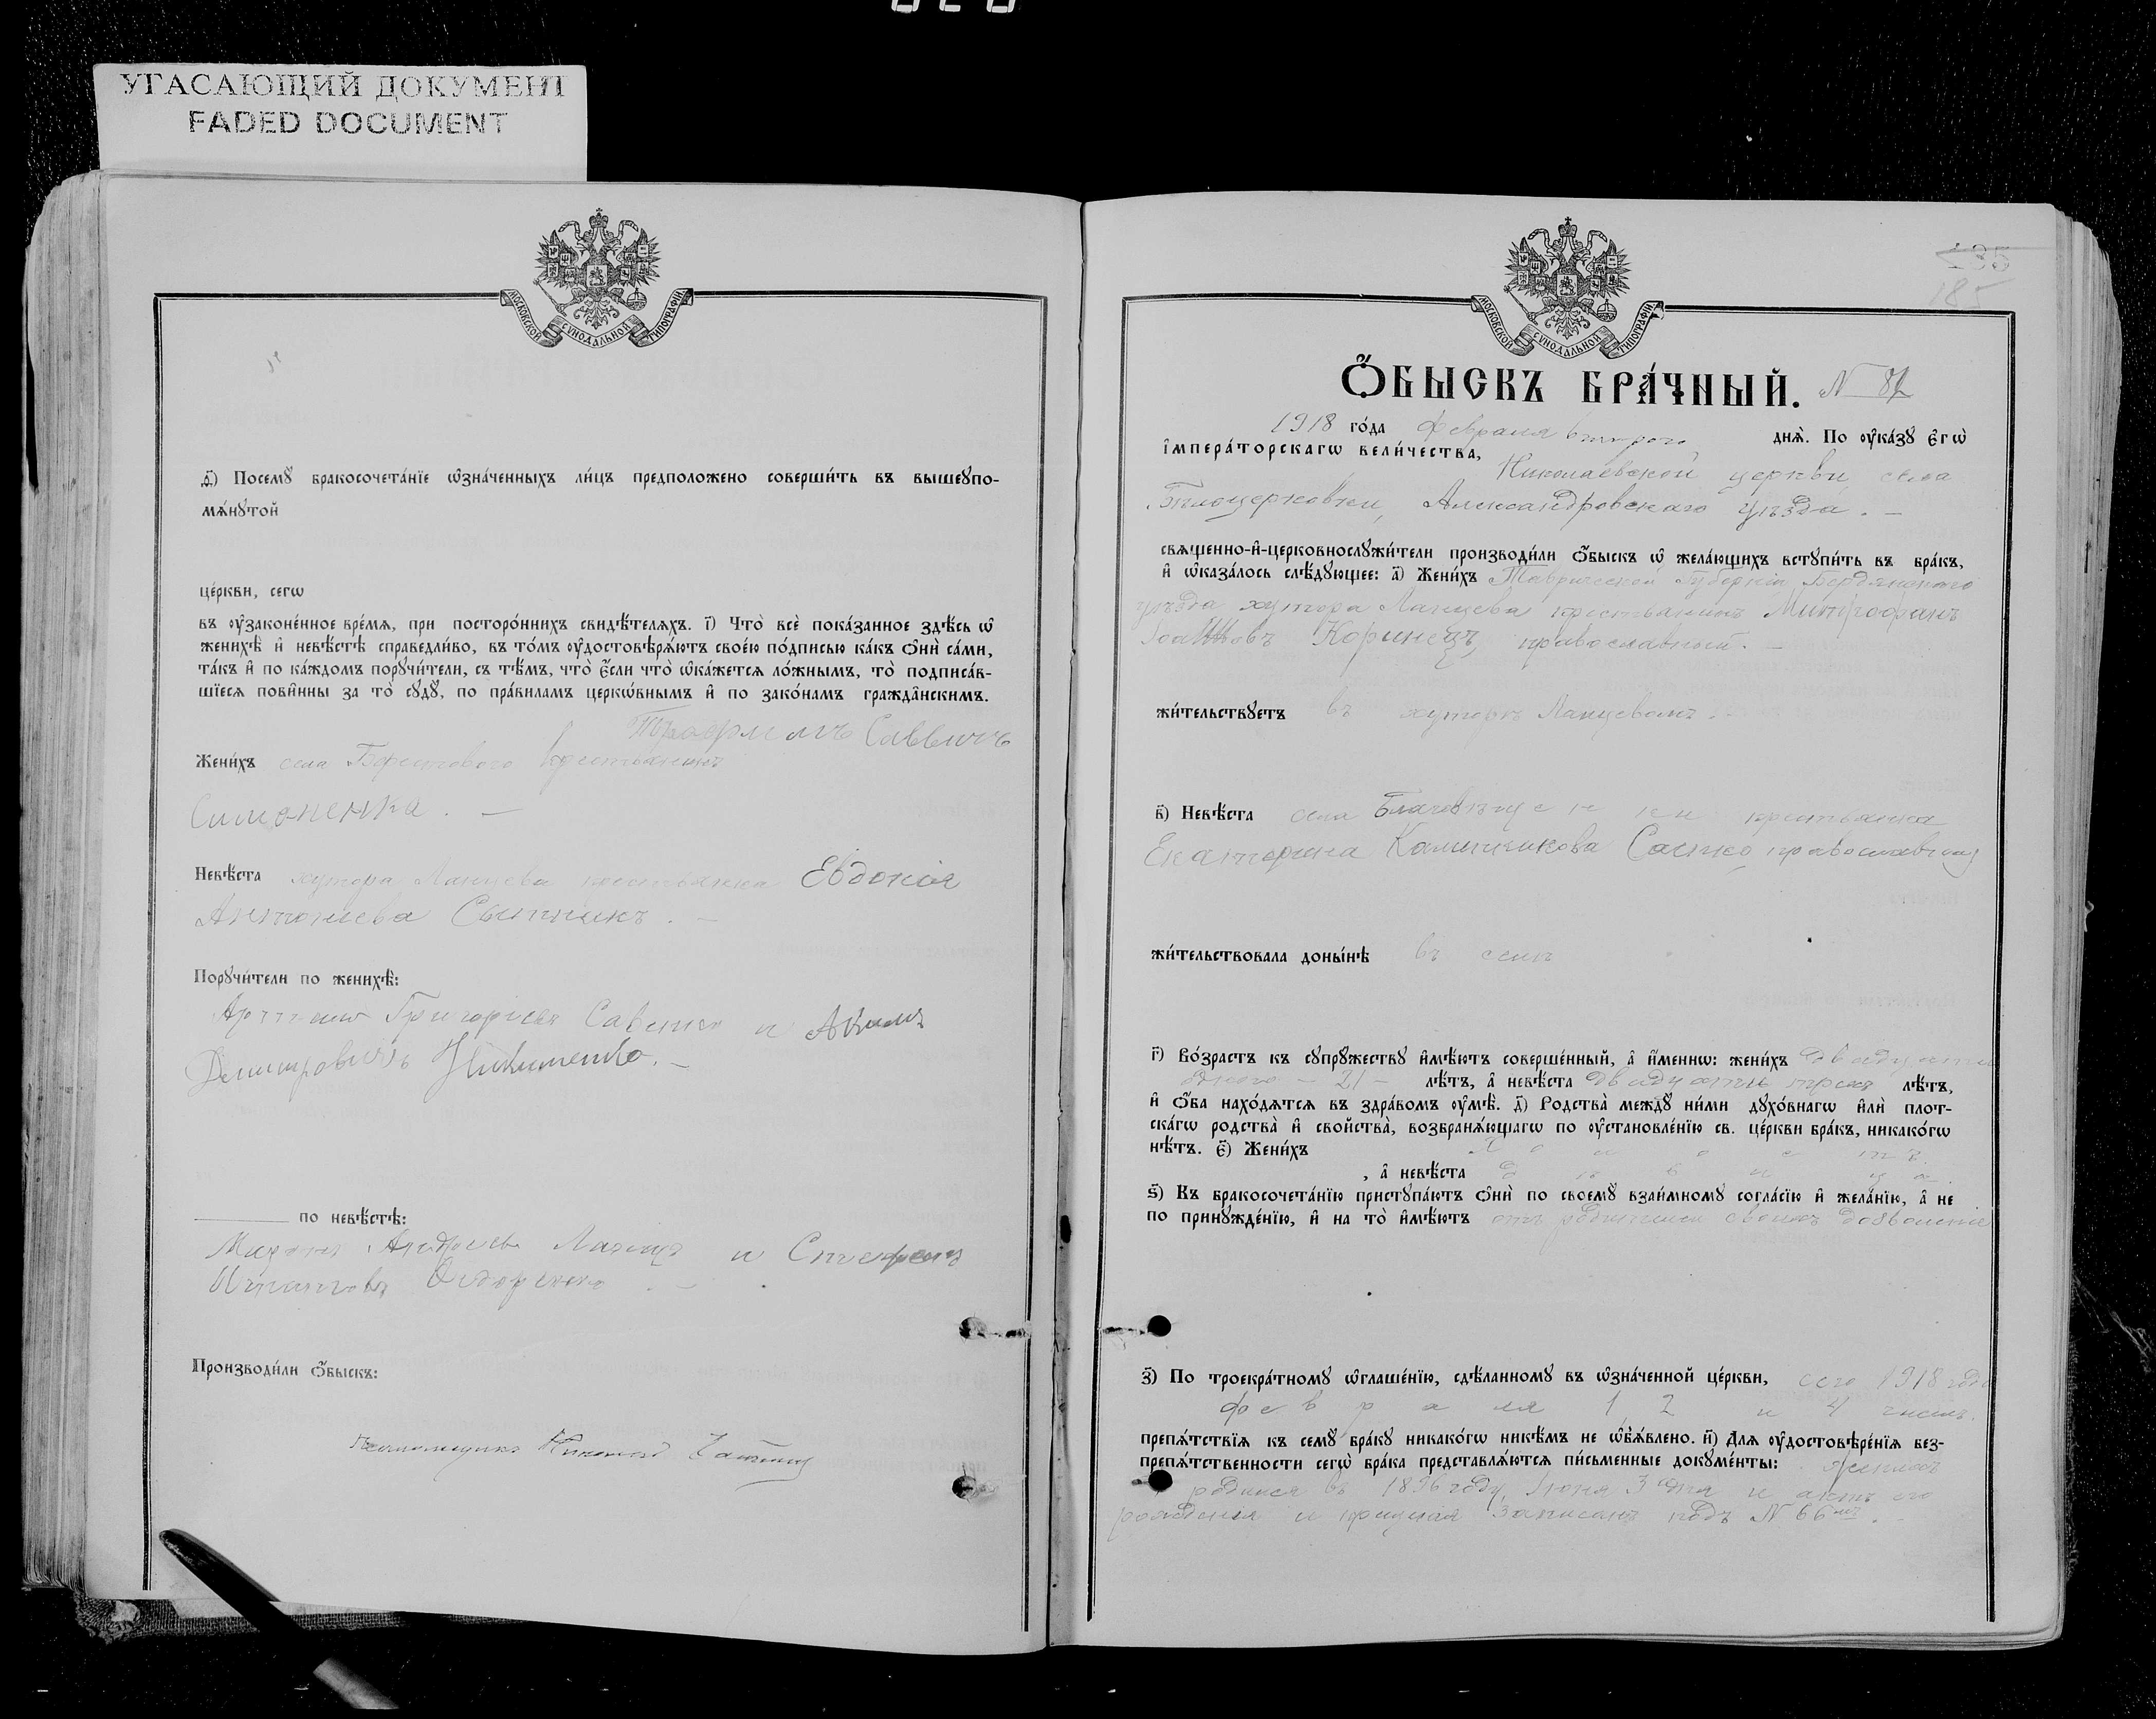 УГАСАЮЩИЙ ДОКУМЕНТ
FADED DOCUMENT
МОСКОВСКОЙ СѴНОДАЛЬНОЙ ТИПОГРАФІИ.
ѳ҃) Посемꙋ̀ бракосочета́нїе ѡ҆зна́ченныхъ ли́цъ предположено соверши́ть въ вышеꙋпо-
мѧ́нꙋтой
це́ркви, сегѡ
въ ᲂу҆законе́нное вре́мѧ, при посторо́ннихъ свидѣ́телѧхъ. і҃) Что̀ всѐ показанное здѣ́сь ѡ
женихѣ̀ и҆ невѣ́стѣ справедли́во, въ то́мъ ᲂу҆достовѣрѧ́ютъ свое́ю по́дписью ка́къ ѻ҆нѝ са́ми,
та́къ и҆ по ка́ждомъ порꙋчи́тели, съ тѣ́мъ, что̀ є҆́сли что̀ ѡ҆ка́жетсѧ ло́жнымъ, то̀ подписа́в-
шїесѧ пови́нны за то̀ сꙋдꙋ̀, по пра́виламъ церкѡ́внымъ и҆ по зако́намъ гражда́нскимъ.
Трофимъ Саввичъ
Жени́хъ села Берестового крестьянинъ
Симоненка. —
Невѣ́ста хутора Ланцева крестьянка Евдокія
Антониева Сытникъ. —
Порꙋчи́тели по женихѣ̀:
Григорьевъ и Акимъ
Дмитровичъ Никитенко. —
по невѣ́стѣ:
Андреевъ и Стефанъ
Ѳедоренко. —
Производи́ли ѻ҆́быскъ:
Николай
185
185
МОСКОВСКОЙ СѴНОДАЛЬНОЙ ТИПОГРАФІИ.
Ѻ҆́БЫСКЪ БРА́ЧНЫЙ. N 82
1918 го́да Февраля второго днѧ̀. По ᲂу҆ка́зꙋ є҆гѡ̀
і҆мпера́торскагѡ вели́чества,
Николаевской церкви села
Бѣлоцерковки, Александровского уѣзда. —
свѧщенно-и҆-церковнослꙋжи́тели производи́ли ѻ҆́быскъ ѡ жела́ющихъ встꙋпи́ть въ бра́къ,
и҆ ѡ҆каза́лось слѣ́дꙋющее: а҃) Жени́хъ Таврической Губерніи Бердянского
уѣзда хутора Ланцева крестьянинъ Митрофанъ
Іоанновъ Коринецъ, православный. —
жи́тельствꙋетъ въ хуторѣ Ланцевомъ.
в҃) Невѣ́ста села Благовѣщенки крестьянка
Екатерина Саенко, православная
жи́тельствовала доны́нѣ въ селѣ
г҃) Во́зрастъ къ сꙋпрꙋжествꙋ и҆мѣ́ютъ соверше́нный, а҆ и҆́меннѡ: жени́хъ двадцати
одного — 21 — лѣ́тъ, а҆ невѣ́ста двадцати трехъ лѣ́тъ,
и҆ ѻ҆́ба нахо́дѧтсѧ въ здра́вомъ ᲂу҆мѣ̀. д҃) Родства̀ междꙋ̀ ни́ми дꙋхо́внагѡ и҆лѝ плот-
ска́гѡ родства̀ и҆ сво́йства̀, возбранѧ́ющагѡ по ᲂу҆становле́нїю св. це́ркви бра́къ, никако́гѡ
нѣ́тъ. є҃) Жени́хъ холостъ
, а҆ невѣ́ста дѣвица.
ѕ҃) Къ бракосочета́нїю пристꙋпа́ютъ ѻ҆нѝ по своемꙋ̀ взаи́мномꙋ согла́сїю и҆ жела́нїю, а҆ не
по принꙋжде́нїю, и҆ на то̀ и҆мѣ́ютъ отъ родителей своихъ дозволеніе
з҃) По троекра́тномꙋ ѡ҆глаше́нїю, сдѣ́ланномꙋ въ ѡ҆зна́ченной це́ркви, сего 1918 года
февраля 1, 2 и 4 числъ.
препѧ́тствїѧ къ семꙋ̀ бра́кꙋ никако́гѡ никѣ́мъ не ѡ҆б̾ѧ́влено. и҃) Длѧ ᲂу҆достовѣре́нїѧ без-
препѧ́тственности сегѡ̀ бра́ка представлѧ́ютсѧ пи́сьменные докꙋме́нты: Женихъ
родился въ 1896 году, Іюня 3 дня и актъ его
рожденія и крещенія записанъ подъ N 66 мъ.